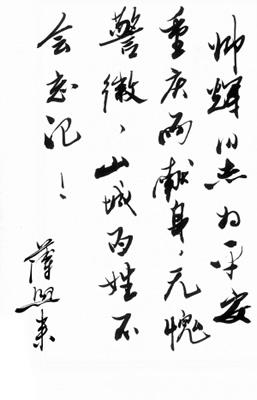 帅辉同志为平安
重庆而献身,无愧
警徽,山城百姓不
会忘记!
薄熙来